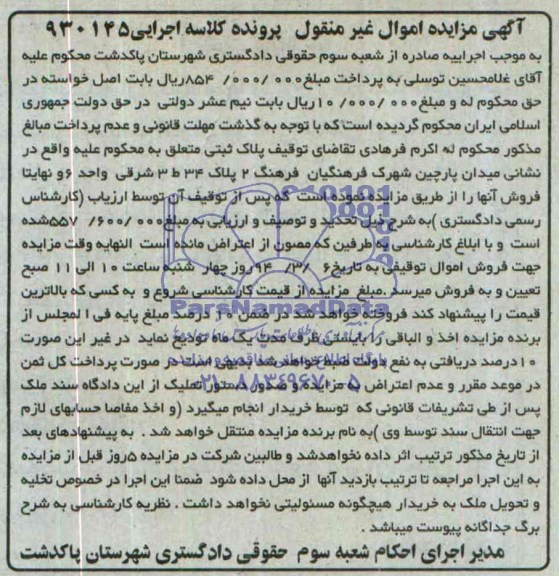 آگهی مزایده اموال غیر منقول پرونده کلاسه اجرایی۹۳۰۱۴۵
به موجب اجراییه صادره از شعبه سوم حقوقی دادگستری شهرستان پاکدشت محکوم علیه
آقای غلامحسین توسلی به پرداخت مبلغ۰۰۰/۰۰۰/ ۸۵۴ریال بابت اصل خواسته در
حق محکوم له و مبلغ۰۰۰/۰۰۰/ ۱۰ریال بابت نیم عشر دولتی در حق دولت جمهوری
اسلامی ایران محکوم گردیده است که با توجه به گذشت مهلت قانونی و عدم پرداخت مبالغ
مذکور محکوم له اکرم فرهادی تقاضای توقیف پلاک ثبتی متعلق به محکوم علیه واقع در
نشانی میدان پارچین شهرک فرهنگیان فرهنگ ۲ پلاک ۳۴ ط ۳ شرقی واحد ۶و نهایتا
فروش آنها را از طریق مزایده نموده است که پس از توقیف آن توسط ارزیاب (کارشناس
رسمی دادگستری )به شرح ذیل تحدید و توصیف و ارزیابی به مبلغ۰۰۰/۶۰۰/ ۵۵۷شده
است و با ابلاغ کارشناسی به طرفین که مصون از اعتراض مانده است النهایه وقت مزایده
جهت فروش اموال توقیفی به تاریخ۶ /۳/ ۹۴روز چهار شنبه ساعت ۱۰ الی ۱۱ صبح
تعیین و به فروش میرسد .مبلغ مزایده از قیمت کارشناسی شروع و به کسی که بالاترین
قیمت را پیشنهاد کند فروخته خواهد شد در ضمن ۱۰ درصد مبلغ پایه فی المجلس از
برنده مزایده اخذ و الباقی را بایستی ظرف مدت یک ماه تودیع نماید در غیر این صورت
۱۰درصد دریافتی به نفع دولت ضبط خواهد شد بدیهی است در صورت پرداخت کل ثمن
در موعد مقرر و عدم اعتراض به مزایده و صدور دستور تملیک از این دادگاه سند ملک
پس از طی تشریفات قانونی که توسط خریدار انجام میگیرد (و اخذ مفاصا حسابهای لازم
جهت انتقال سند توسط وی )به نام برنده مزایده منتقل خواهد شد . به پیشنهادهای بعد
از تاریخ مذکور ترتیب اثر داده نخواهدشد و طالبین شرکت در مزایده ۵روز قبل از مزایده
به این اجرا مراجعه تا ترتیب بازدید آنها از محل داده شود ضمنا این اجرا در خصوص تخلیه
و تحویل ملک به خریدار هیچگونه مسئولیتی نخواهد داشت . نظریه کارشناسی به شرح
برگ جداگانه پیوست میباشد .
مدیر اجرای احکام شعبه سوم حقوقی دادگستری شهرستان پاکدشت
ParsNamadData
۰۲۱-۸۸۳۴۹۶۷۰-۵